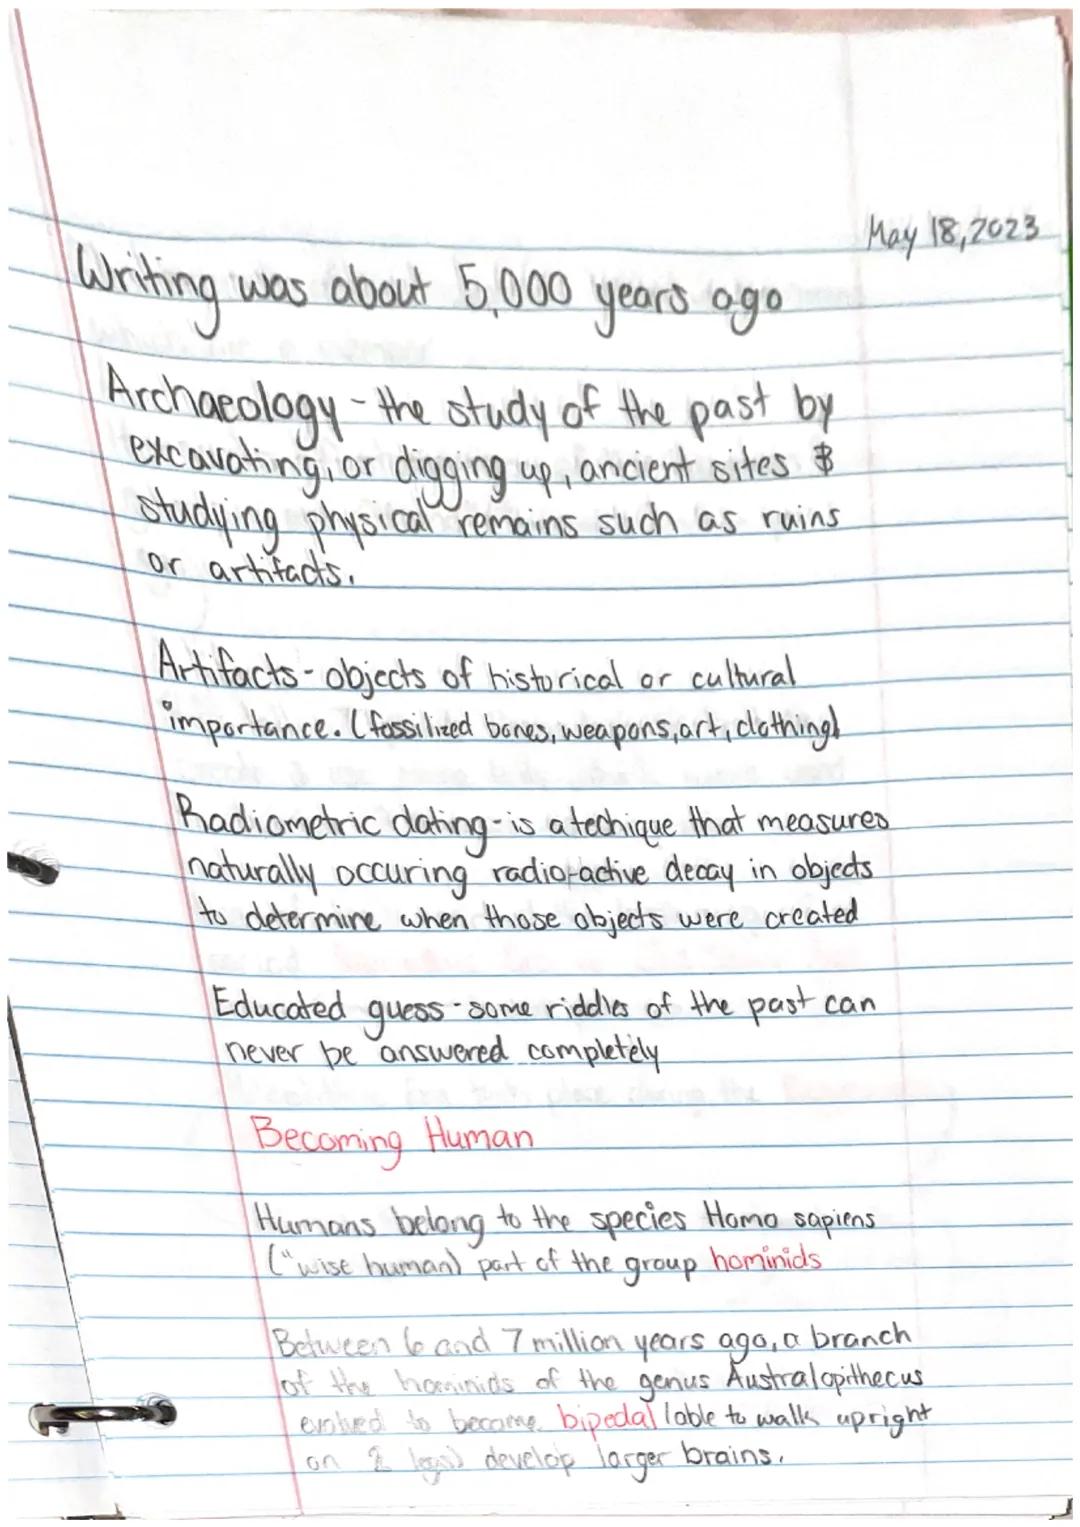 May 18, 2023
Writing was about 5,000 years ago
Archaeology - the study of the past by
excavating, or digging up, ancient sites &
studying physical remains such as ruins
or artifacts.
Artifacts - objects of historical or cultural
importance. (fossilized bones, weapons, art, clothing)
Radiometric dating - is a techique that measures
naturally occuring radio-active decay in objects
to determine when those objects were created
Educated guess - some riddles of the past can
never be answered completely
Becoming Human
Humans belong to the species Homo sapiens
("wise human) part of the group hominids
Between 6 and 7 million years ago, a branch
of the hominids of the genus Australopithecus
evolved to become bipedal (able to walk upright
on 2 legs) develop larger brains.